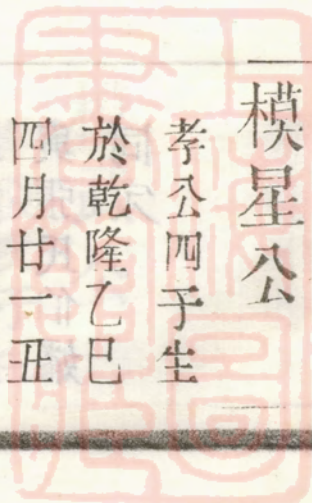 模星公
孝公四子生
於乾隆乙巳
四月廿一丑